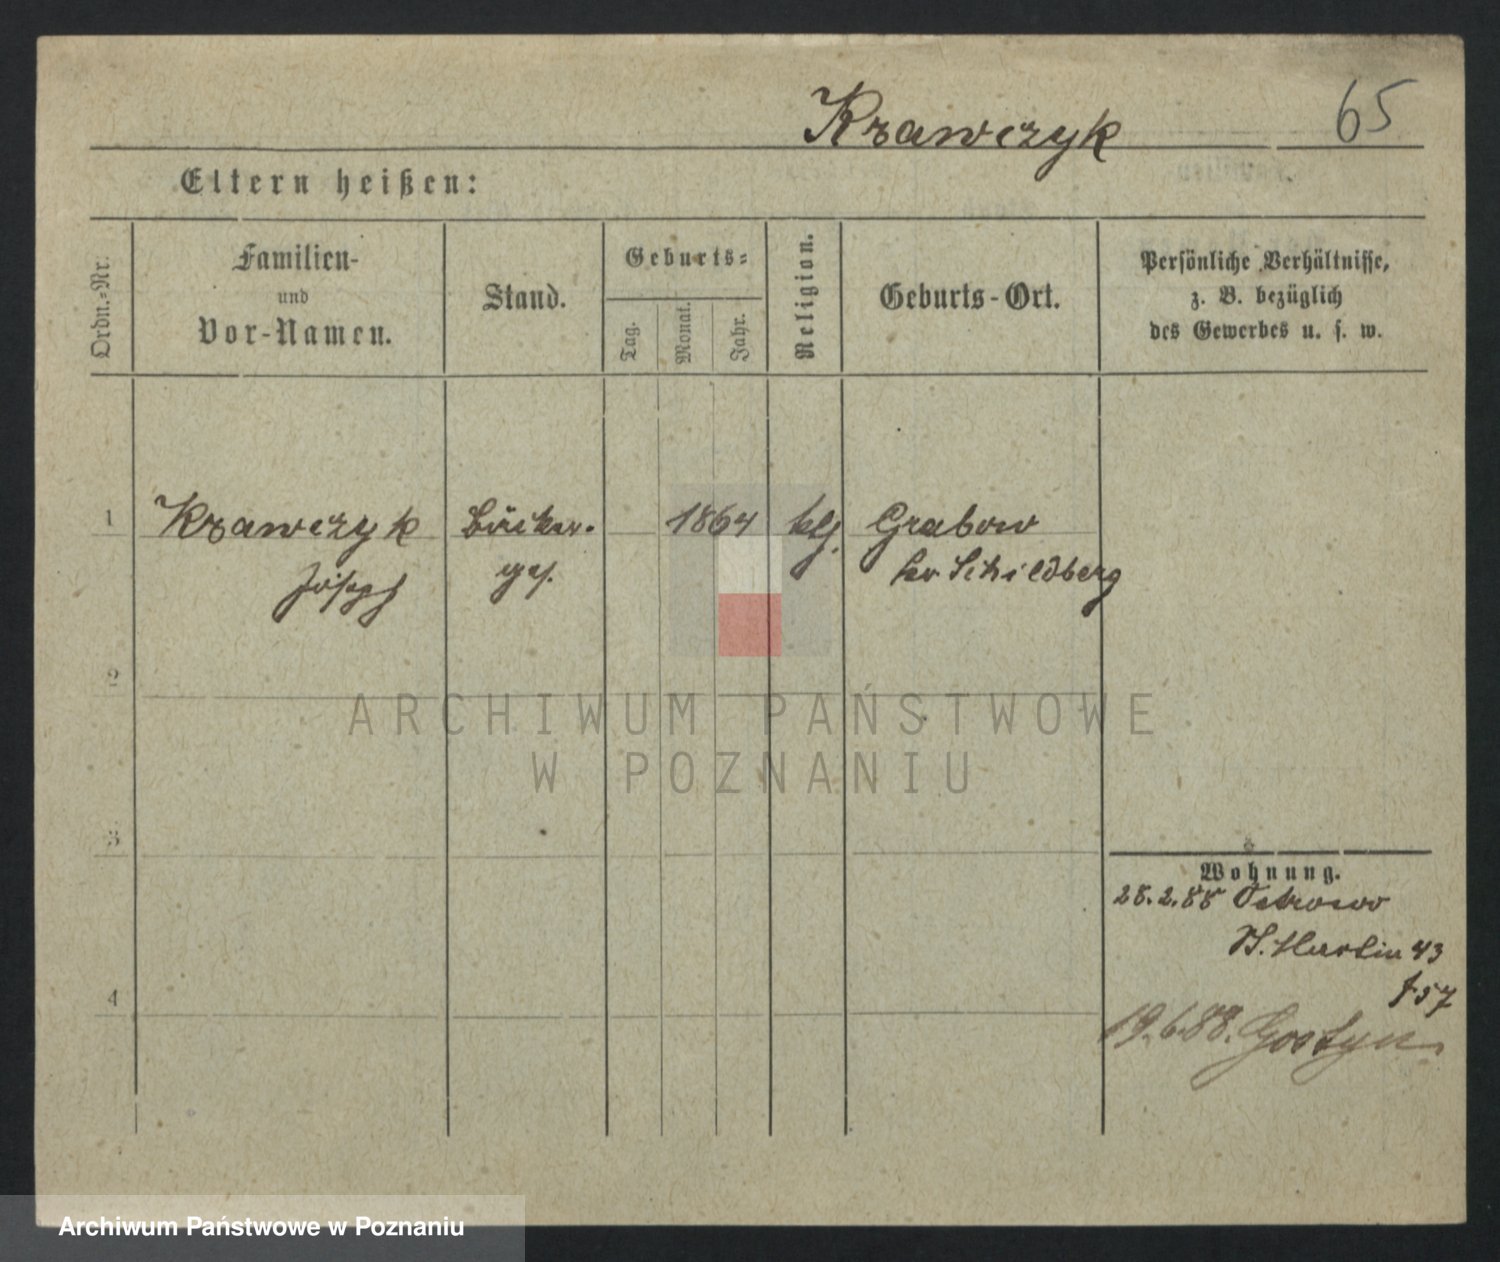 Krawczyk 65
Eltern heißen:
Ordn.-Nr.
Familien-
und
Vor-Namen.
Stand.
Geburts-
Tag.
Monat.
Jahr.
Religion.
Geburts-Ort.
Persönliche Verhältnisse,
z. B. bezüglich
des Gewerbes u. s. w.
1 Krawczyk Bäcker- 1864 ktl. Grabow
Joseph ges. Kr Schildberg
2
ARCHIWUM PAŃSTWOWE
W POZNANIU
3
Wohnung.
28.2.88 Ostrowo
St. Martin 43
4
19.6.88. Gostyn
Archiwum Państwowe w Poznaniu